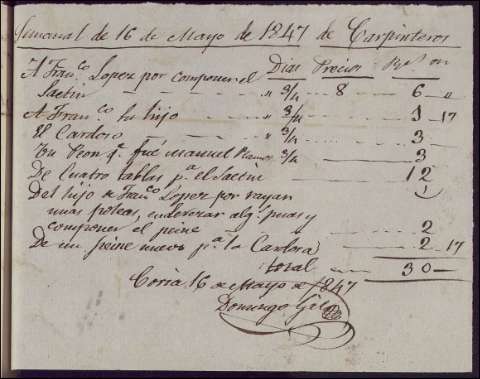 Semanal de 16 de Mayo de 1847 de Carpinteros
Dias Precios Rs. on
A Franco. Lopez por componer el
Saetin " 3/4 8 6 "
A Franco. su hijo " 3/4 1 17
El Cardoso " 3/4 3
Un Peon q. fué Manuel Ramos 3/4 3
De Cuatro tablas pa. el Saetin 12
Del hijo de Franco. Lopez por
unas poleas, enderezar alg. puas y
componer el peine 2
De un peine nuevo pa. la Cardosa 2 17
total 30
Coria 16 de Mayo de 1847
Domingo Gil